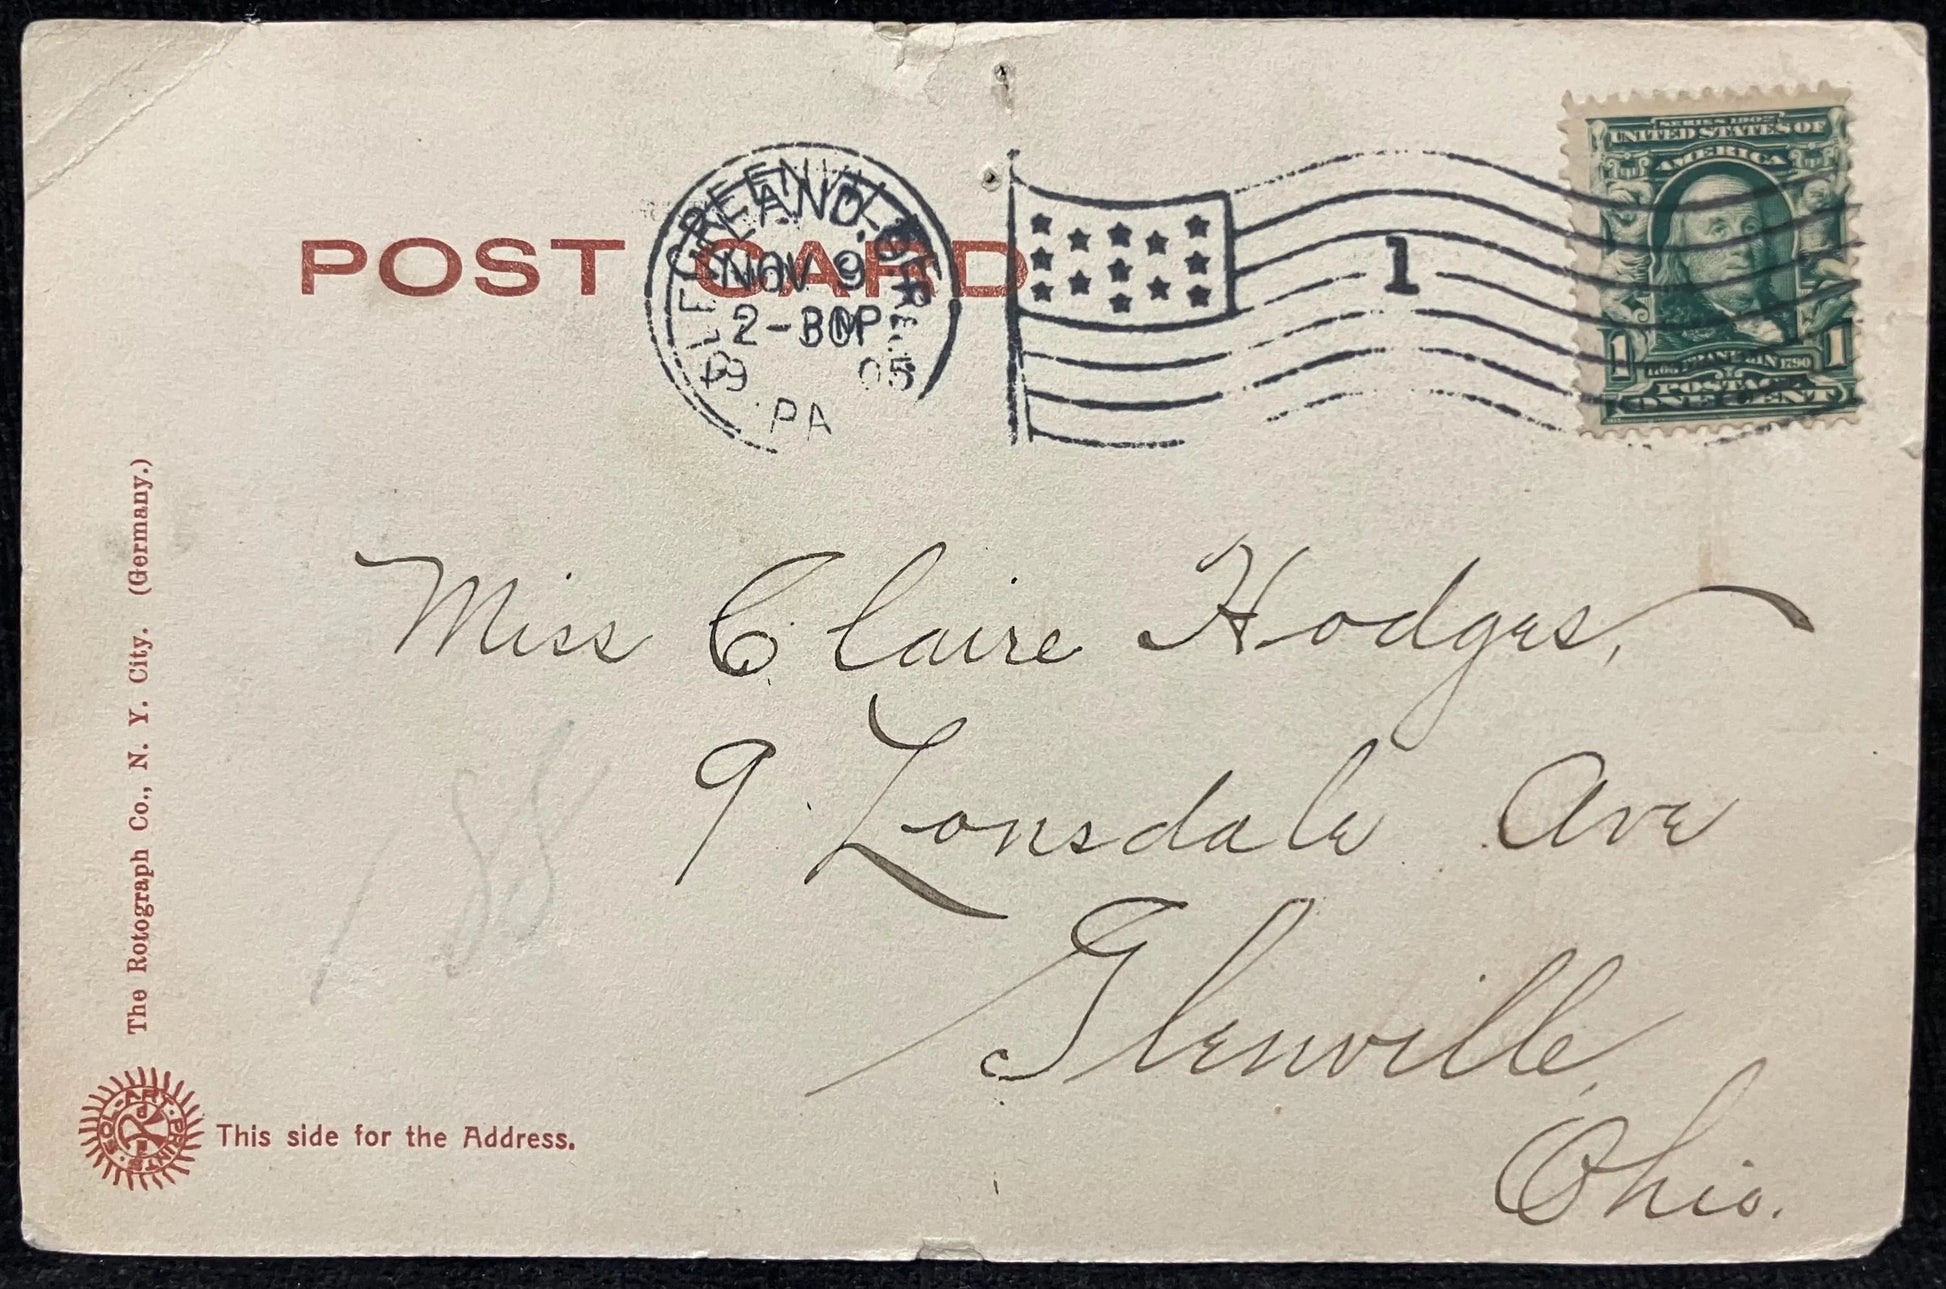 POST CARD
GREENVILLE
CLEVELAND, O.
NOV 9
2-30P
05
PA
1
SERIES 1902
UNITED STATES OF
AMERICA
1 1
FRANKLIN 1790
POSTAGE
ONE CENT
Miss Claire Hodges,
9 Lonsdale Ave
Glenville,
Ohio.
188
The Rotograph Co., N. Y. City. (Germany.)
SOL-ART-PRINTS
This side for the Address.